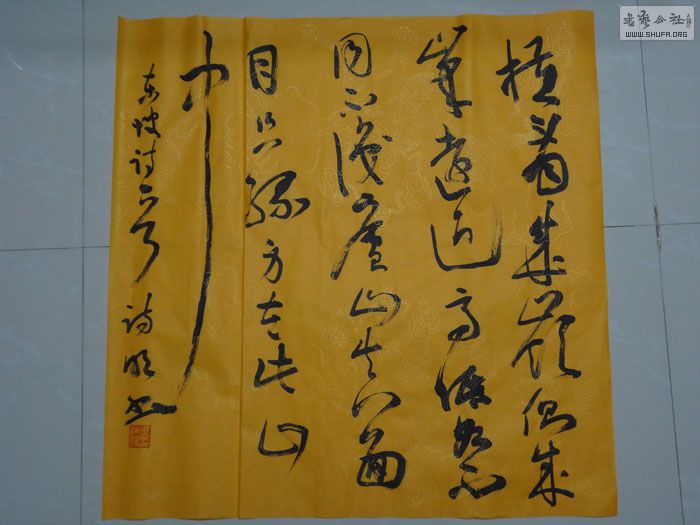 横看成嶺側成
峯遠近高低各不
同不識廬山真面
目只緣身在此山
中
东坡诗一首 诗明书
書藝公社
WWW.SHUFA.ORG